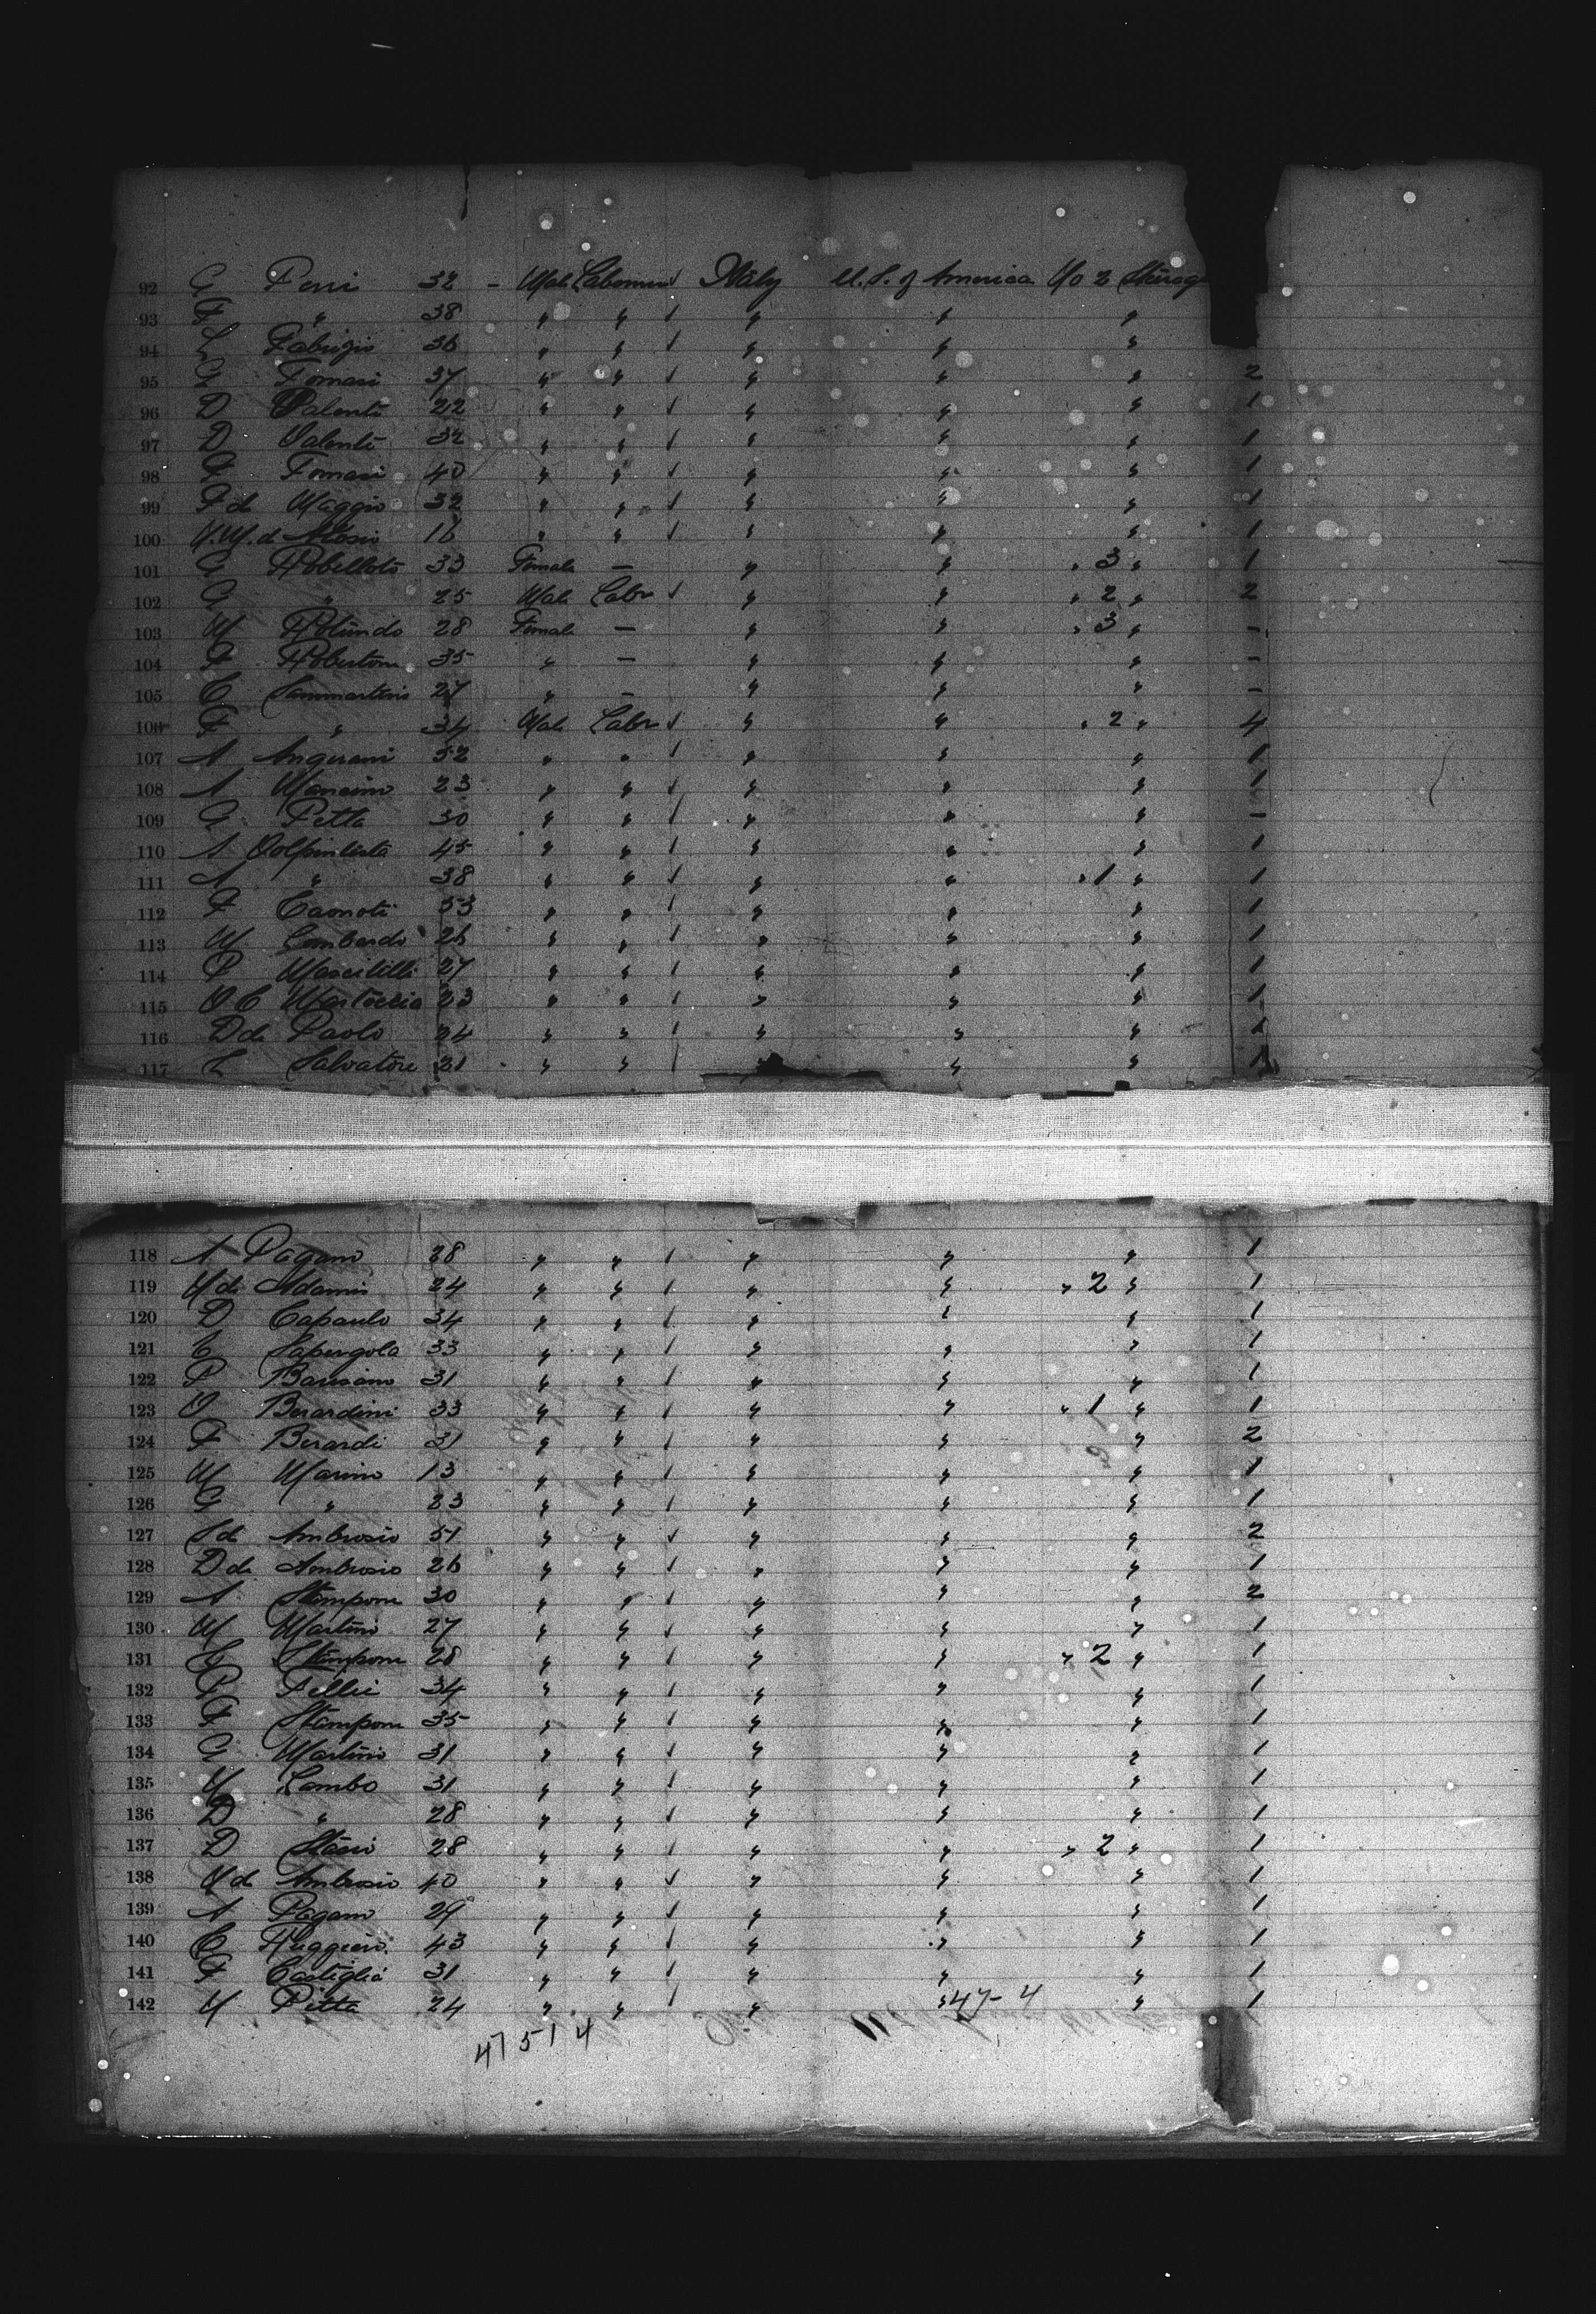 92 G Perri 32 - Male Labourer ✓ Italy U.S. of America No 2 Steerag
93 F " 38 " " ✓ " " "
94 L Fabrizio 36 " " ✓ " " "
95 G Tomasi 37 " " ✓ " " " 2
96 D Valenti 22 " " ✓ " " " 1
97 D Valenti 32 " " ✓ " " " 1
98 G Tomasi 40 " " ✓ " " " 1
99 F de Maggio 32 " " ✓ " " " 1
100 V.M. d Alosio 16 " " ✓ " " " 1
101 G Robelloto 33 Female — " " " 3 " 1
102 G " 25 Male Labr ✓ " " " 2 " 2
103 M Rotundo 28 Female — " " " 3 " -
104 F Robertone 35 " — " " " -
105 C Sammartino 27 " - " " " -
106 F " 34 Male Labr ✓ " " " 2 " 4
107 A 52 " " ✓ " " " 1
108 A Mancino 23 " " ✓ " " " 1
109 G Petta 30 " " ✓ " " " -
110 A Volpintesta 45 " " ✓ " " " 1
111 A " 38 " " ✓ " " " 1 " 1
112 F 33 " " ✓ " " " 1
113 M Lombardo 26 " " ✓ " " " 1
114 P Mascitilli 27 " " ✓ " " " 1
115 O C Martoccio 23 " " ✓ " " " 1
116 D de Paolo 24 " " ✓ " " " 1
117 L Salvatore 21 " " ✓ " " 1
118 A Pagano 28 " " ✓ " " " 1
119 M de Adamis 24 " " ✓ " " " 2 " 1
120 D Capaulo 34 " " ✓ " " " 1
121 C Sapengola 33 " " ✓ " " " 1
122 P Barisano 31 " " ✓ " " " 1
123 O Berardini 33 " " ✓ " " " 1 " 1
124 F Berardi 31 " " ✓ " " " 2
125 M Marino 13 " " ✓ " " " 1
126 G " 23 " " ✓ " " " 1
127 S de Ambrosio 51 " " ✓ " " " 2
128 D de Ambrosio 26 " " ✓ " " " 1
129 A Stampone 30 " " ✓ " " " 2
130 M Martino 27 " " ✓ " " " 1
131 G Stampone 28 " " ✓ " " " 2 " 1
132 P Fellii 34 " " ✓ " " " 1
133 F Stampone 35 " " ✓ " " " 1
134 G Martino 31 " " ✓ " " " 1
135 M Lambo 31 " " ✓ " " " 1
136 D " 28 " " ✓ " " " 1
137 D Stasi 28 " " ✓ " " " 2 " 1
138 V de Ambrosio 40 " " ✓ " " " 1
139 A Pagano 29 " " ✓ " " " 1
140 C Ruggiero 43 " " ✓ " " " 1
141 F Castiglia 31 " " ✓ " " " 1
142 M Petta 24 " " ✓ " " 47-4 " 1
47 51 4 11